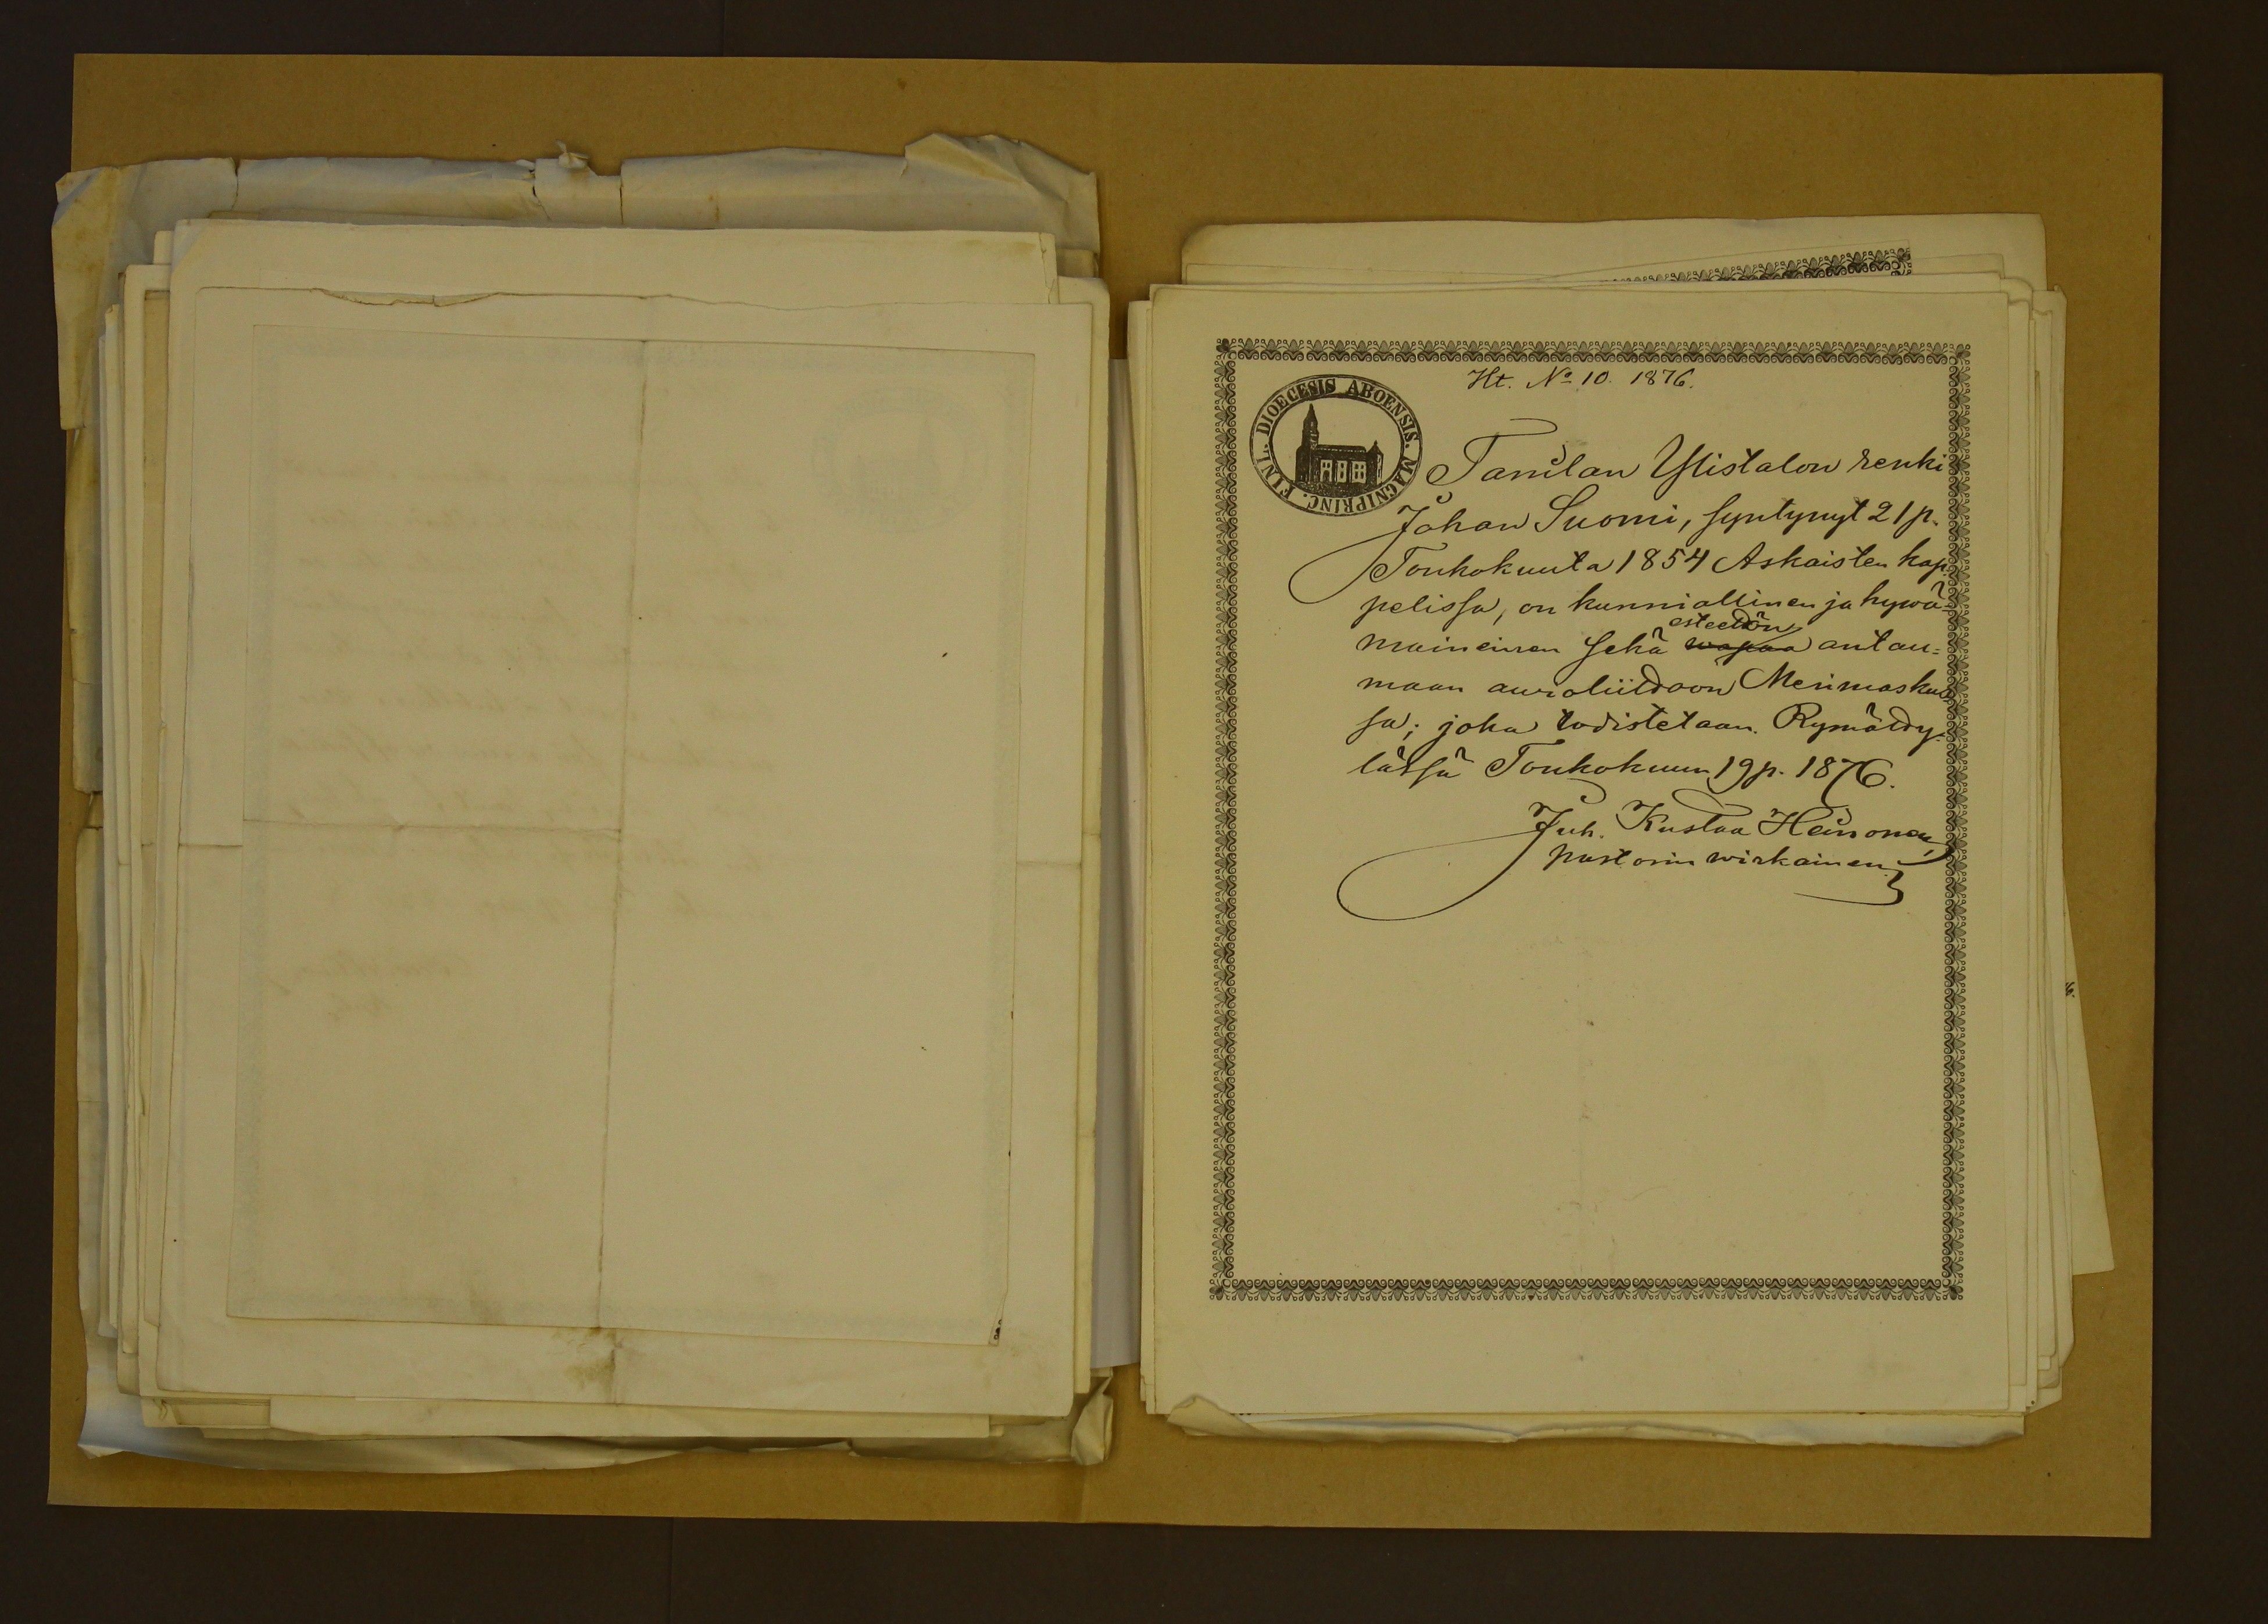 Ht. No 10. 1876.
DIOECESIS ABOENSIS. MAGNIPRINC. FINL.
Tanilan Ylistalon renki
Johan Suomi, syntynyt 21 p.
Toukokuuta 1854 Askaisten kap-
pelissa, on kunniallinen ja hywä-
esteetön
maineinen sekä wapaa antau-
maan awioliittoon Merimasku-
sa; joka todistetaan. Rymätty-
lässä Toukokuun 19 p. 1876.
Juh. Kustaa Heinonen,
pastorin wirkainen.